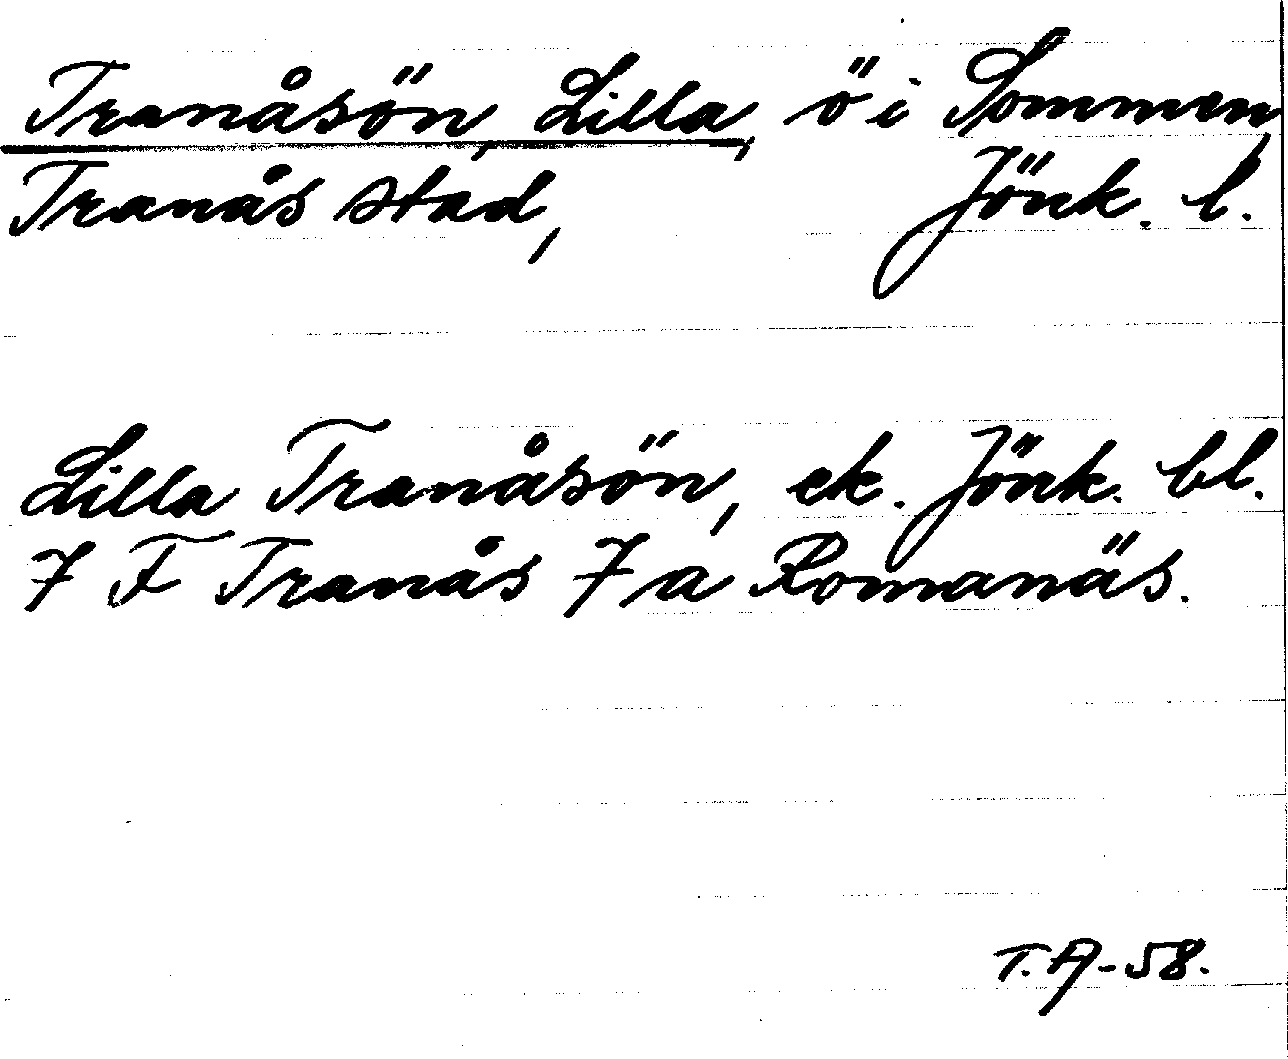 Tranåsön, Lilla, ö i Sommen,
Tranås stad, Jönk. l.
Lilla Tranåsön, ek. Jönk. bl.
7 F Tranås 7 a Romanäs.
T.A-58.